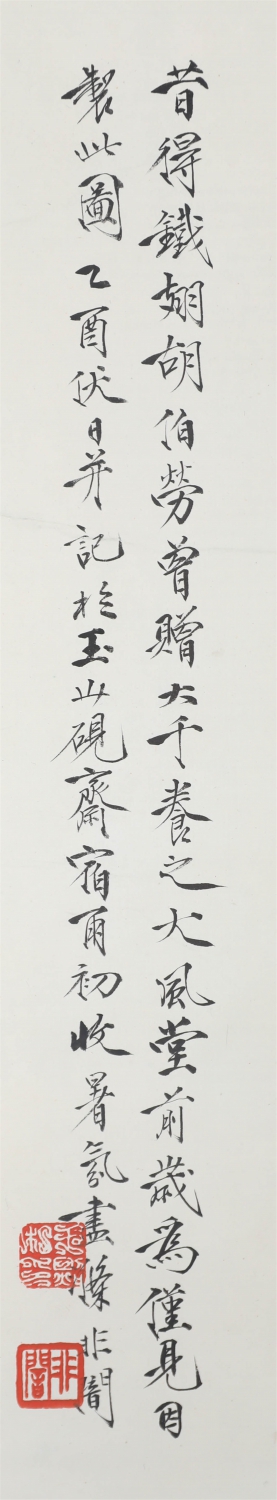 昔得鐵翅胡伯勞曾贈大千養之大風堂前歲為僅見因
製此圖乙酉伏日并記於玉山硯齋宿雨初收暑氛盡滌非闇
非闇